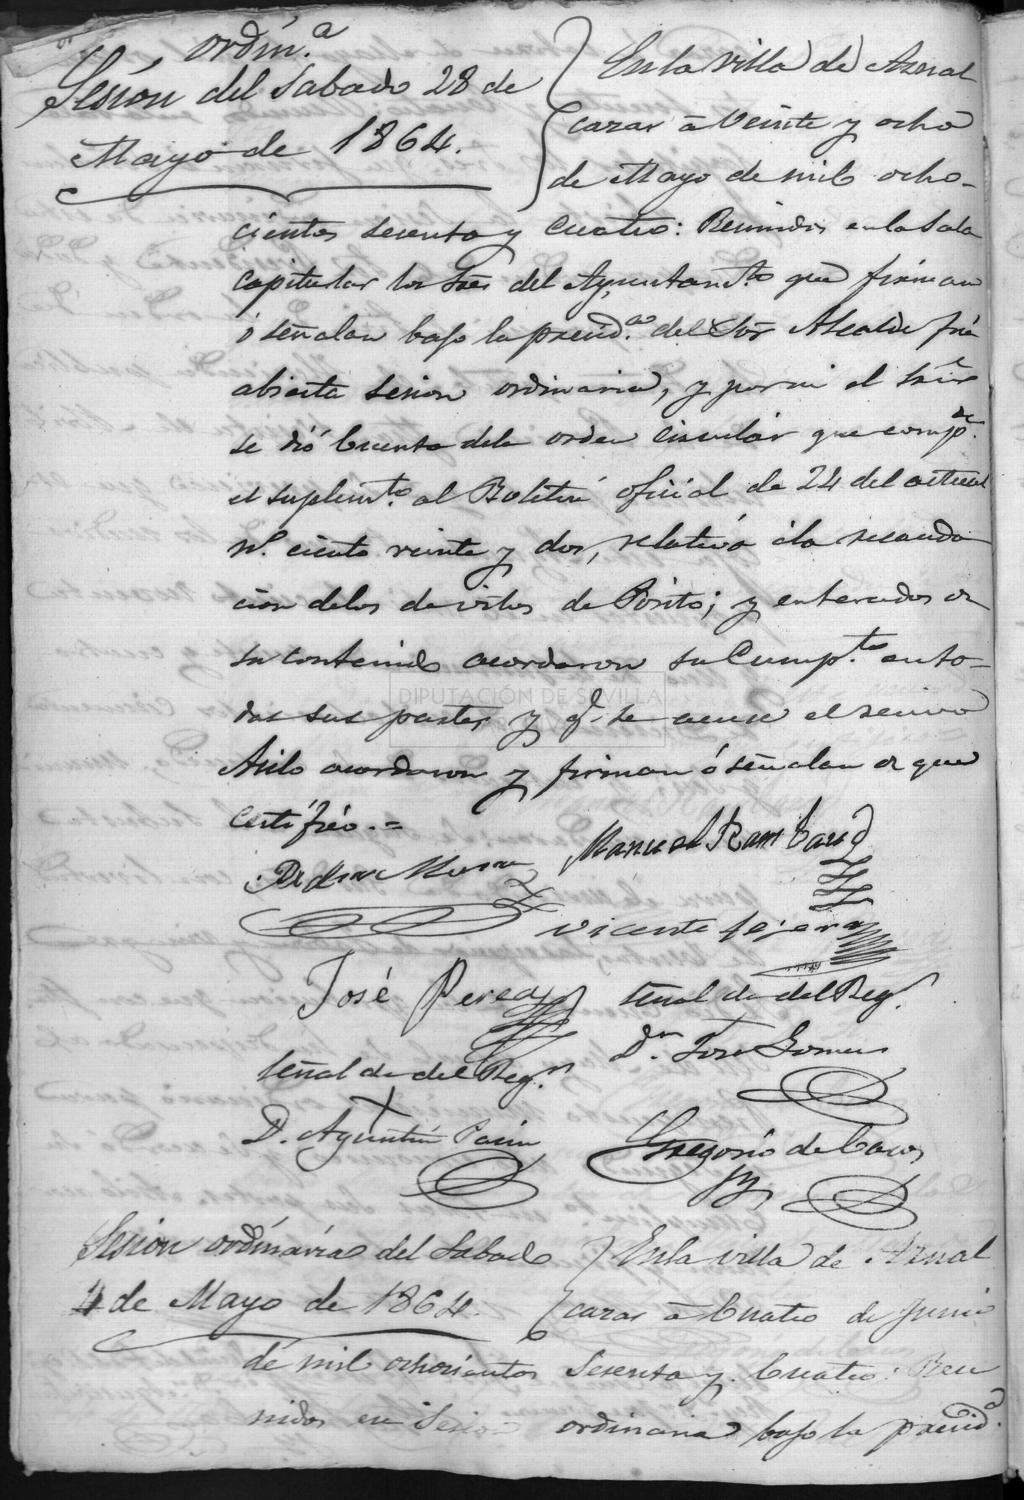 ordin.ª
Sesión del Sabado 28 de
Mayo de 1864.
En la villa de Aznal
cazar á Veinte y ocho
de Mayo de mil ocho-
cientos sesenta y cuatro: Reunidos en la Sala
capitular los Sres del Ayuntam.to que firman
ó señalan bajo la presid.ª del Sor Alcalde fué
abierta sesion ordinaria, y por mi el Srio
se dió Cuenta de la orden circular que comp.de
el suplem.to al Boletin oficial de 24 del actual
nº. ciento veinte y dos, relativa á la recauda
cion de los devitos de Posito; y enterados de
su contenido acordaron su Cump.to en to-
das sus partes y q.e se acuse el recivo
Asilo acordaron y firman ó señalan de que
Certifico.=
Manuel Rambaud
Vicente Tejera
José Perea
señal de del Reg.r
D.n Jose Gomez
señal de del Reg.r
D. Agustin
Gregorio de
Sesion ordinaria del Sabado
4 de Mayo de 1864.
En la villa de Aznal
cazar á Cuatro de Junio
de mil ochocientos Sesenta y Cuatro: Reu
nidos en Sesion ordinaria bajo la presid.ª
DIPUTACIÓN DE SEVILLA